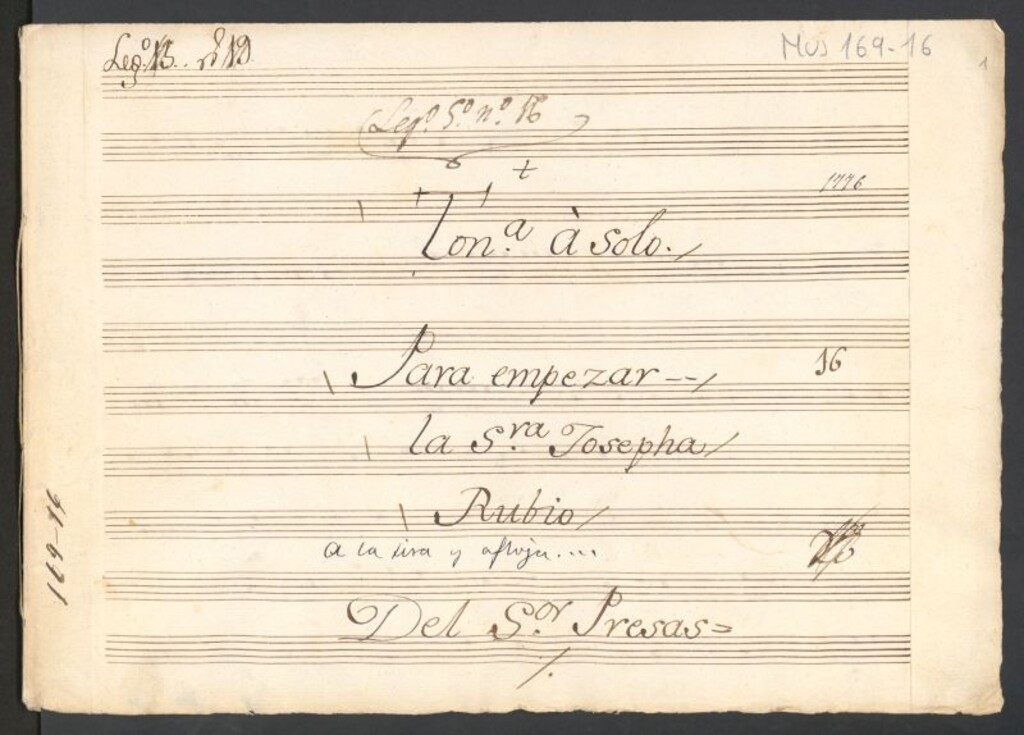 Leg.º 13. nº 19.
Mus 169-16
1
Legº. 5º. nº. 16
1776
Ton.ª à solo.
Para empezar
16
la S.ra Josepha
Rubio
a la tira y afloja....
169-16
Del S.or Presas=